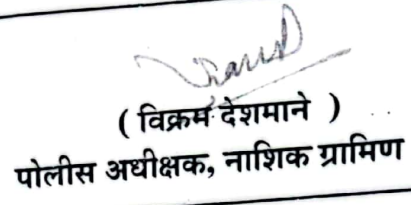 ( विक्रम देशमाने )
पोलीस अधीक्षक, नाशिक ग्रामिण